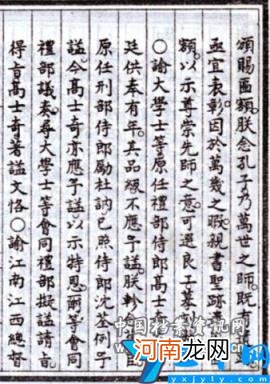 頒賜匾額朕念孔子乃萬世之師既可
亟宜表彰因於萬幾之暇親書聖跡
額以示尊崇先師之意可選良子摹
○諭大學士等原任禮部侍郎高士奇
廷供奉有年其品級不應予諡朕軫念
原任刑部侍郎勵杜訥已照侍郎沈荃例予
諡今高士奇亦應予諡以示特恩爾等會同
禮部議奏尋大學士等會同禮部擬諡請旨
得旨高士奇著諡文恪○諭江南江西總督
中国档案资讯
河南龙网
yxjjyl.com